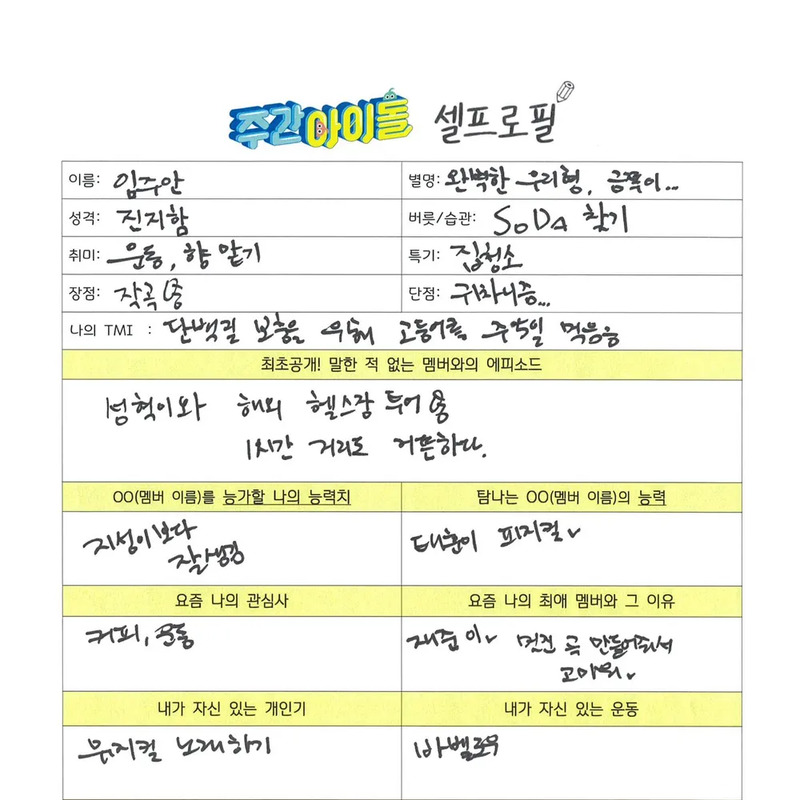 주간아이돌 셀프로필
이름: 임주안
별명: 완벽한 우리형, 금쪽이...
성격: 진지함
버릇/습관: SoDA 찾기
취미: 운동, 향 맡기
특기: 집청소
장점: 작곡
단점: 귀차니즘...
나의 TMI : 단백질 보충을 위해 고등어를 주5일 먹음
최초공개! 말한 적 없는 멤버와의 에피소드
성혁이와 해외 헬스장 투어
1시간 거리도 거뜬하다.
OO(멤버 이름)를 능가할 나의 능력치
탐나는 OO(멤버 이름)의 능력
지성이보다
잘생김
태훈이 피지컬
요즘 나의 관심사
요즘 나의 최애 멤버와 그 이유
커피, 운동
재준이 멋진 곡 만들어줘서
고마워
내가 자신 있는 개인기
내가 자신 있는 운동
뮤지컬 노래하기
바벨로우